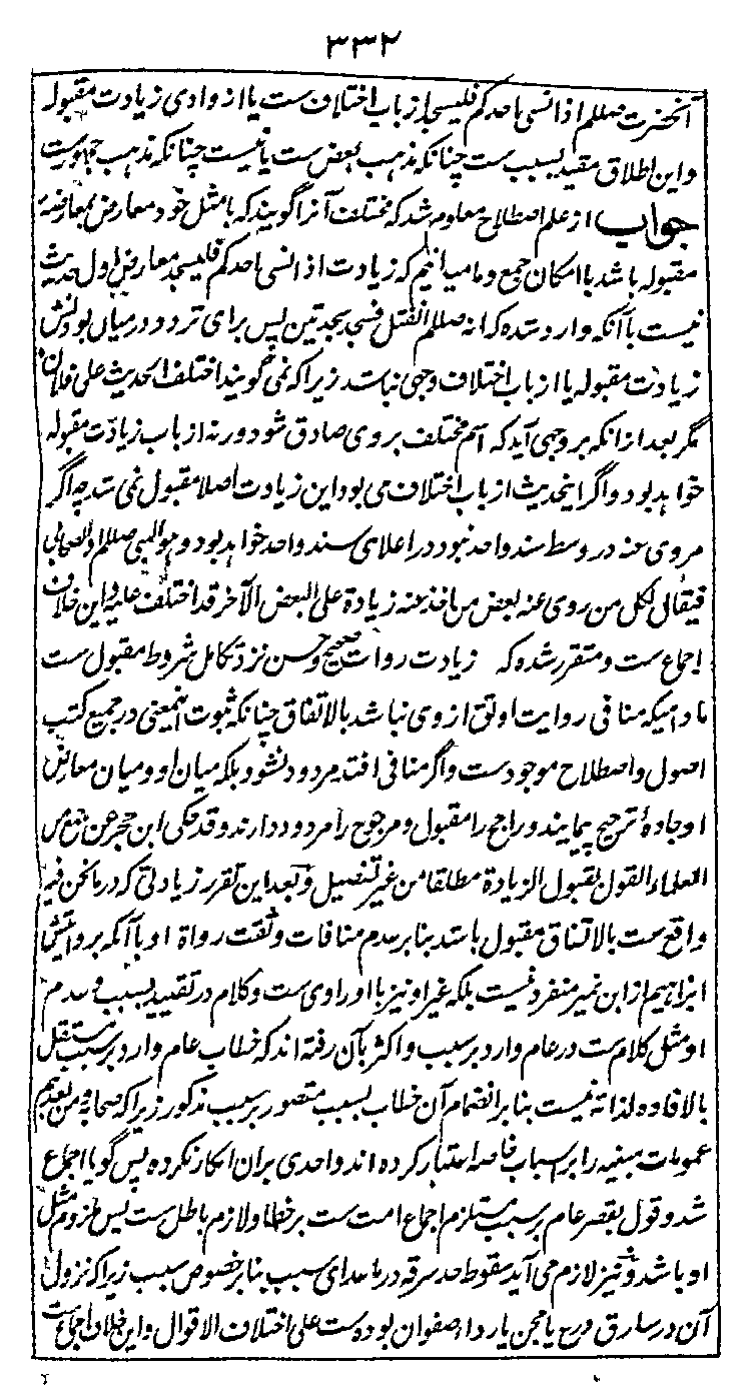 ۳۳۲
آنحضرت صللم اذا نسی احدکم فلیسجد از باب اختلاف ست یا از وادی زیادت مقبوله
و این اطلاق مقید بسبب ست چنانکه مذهب بعض ست یا نیست چنانکه مذهب جمهورست
جواب از علم اصطلاح معلوم شد که مختلف آنرا گویند که با مثل خود معارض بمعارضه
مقبوله باشد با امکان جمع و ما میدانیم که زیادت اذا نسی احدکم فلیسجد معارض اول حدیث
نیست با آنکه وارد شده که انه صللم انفتل فسجد سجدتین پس برای تردد در میان بودنش
زیادت مقبوله یا از باب اختلاف وجهی نباشد زیرا که نمی گویند اختلف الحدیث علی فلان
مگر بعد از انکه بر وجهی آید که اسم مختلف بر وی صادق شود ورنه از باب زیادت مقبوله
خواهد بود و اگر اینحدیث از باب اختلاف می بود این زیادت اصلا مقبول نمی شد چه اگر
مروی عنه در وسط سند واحد نبود در اعلای سند واحد خواهد بود و هو النبی صللم او الصحابی
فیقال لکل من روی عنه بعض من اخذ عنه زیادة علی البعض الآخر قد اختلف علیه و این خلاف
اجماع ست و متقرر شده که زیادت روات صحیح و حسن نزد تکامل شروط مقبول ست
مادامیکه منافی روایت اوثق از وی نباشد بالاتفاق چنانکه ثبوت اینمعنی در جمیع کتب
اصول و اصطلاح موجود ست و اگر منافی افتد مردود نشود بلکه میان او و میان معارض
او جاده ترجیح پیمایند و راجح را مقبول و مرجوح را مردود دارند وقد حکی ابن حجر عن جمع من
العلماء القول بقبول الزیادة مطلقا من غیر تفصیل و بعد این تقرر زیادتی که در ما نحن فیه
واقع ست بالاتفاق مقبول باشد بنا بر عدم منافات و ثقت رواة او با آنکه بروایتش
ابراهیم از ابن نمیر منفرد نیست بلکه غیر او نیز با او راوی ست و کلام در تقیید بسبب و عدم
او مثل کلام ست در عام وارد بر سبب و اکثر بآن رفته اند که خطاب عام وارد بر سبب مستقل
بالافاده لذاته نیست بنا بر انضمام آن خطاب بسبب مقصور بر سبب مذکور زیرا که صحابه و من بعدهم
عمومات مبنیه را بر اسباب خاصه اعتبار کرده اند و احدی بران انکار نکرده پس گویا اجماع
شد و قول بقصر عام بر سبب مستلزم اجماع امت ست بر خطا و لازم باطل ست پس ملزوم مثل
او باشد و نیز لازم می آید سقوط حد سرقه در ماعدای سبب بنا بر خصوص سبب زیرا که نزول
آن در سارق درع یا مجن یا رداء صفوان بوده ست علی اختلاف الاقوال و این خلاف اجماع ست